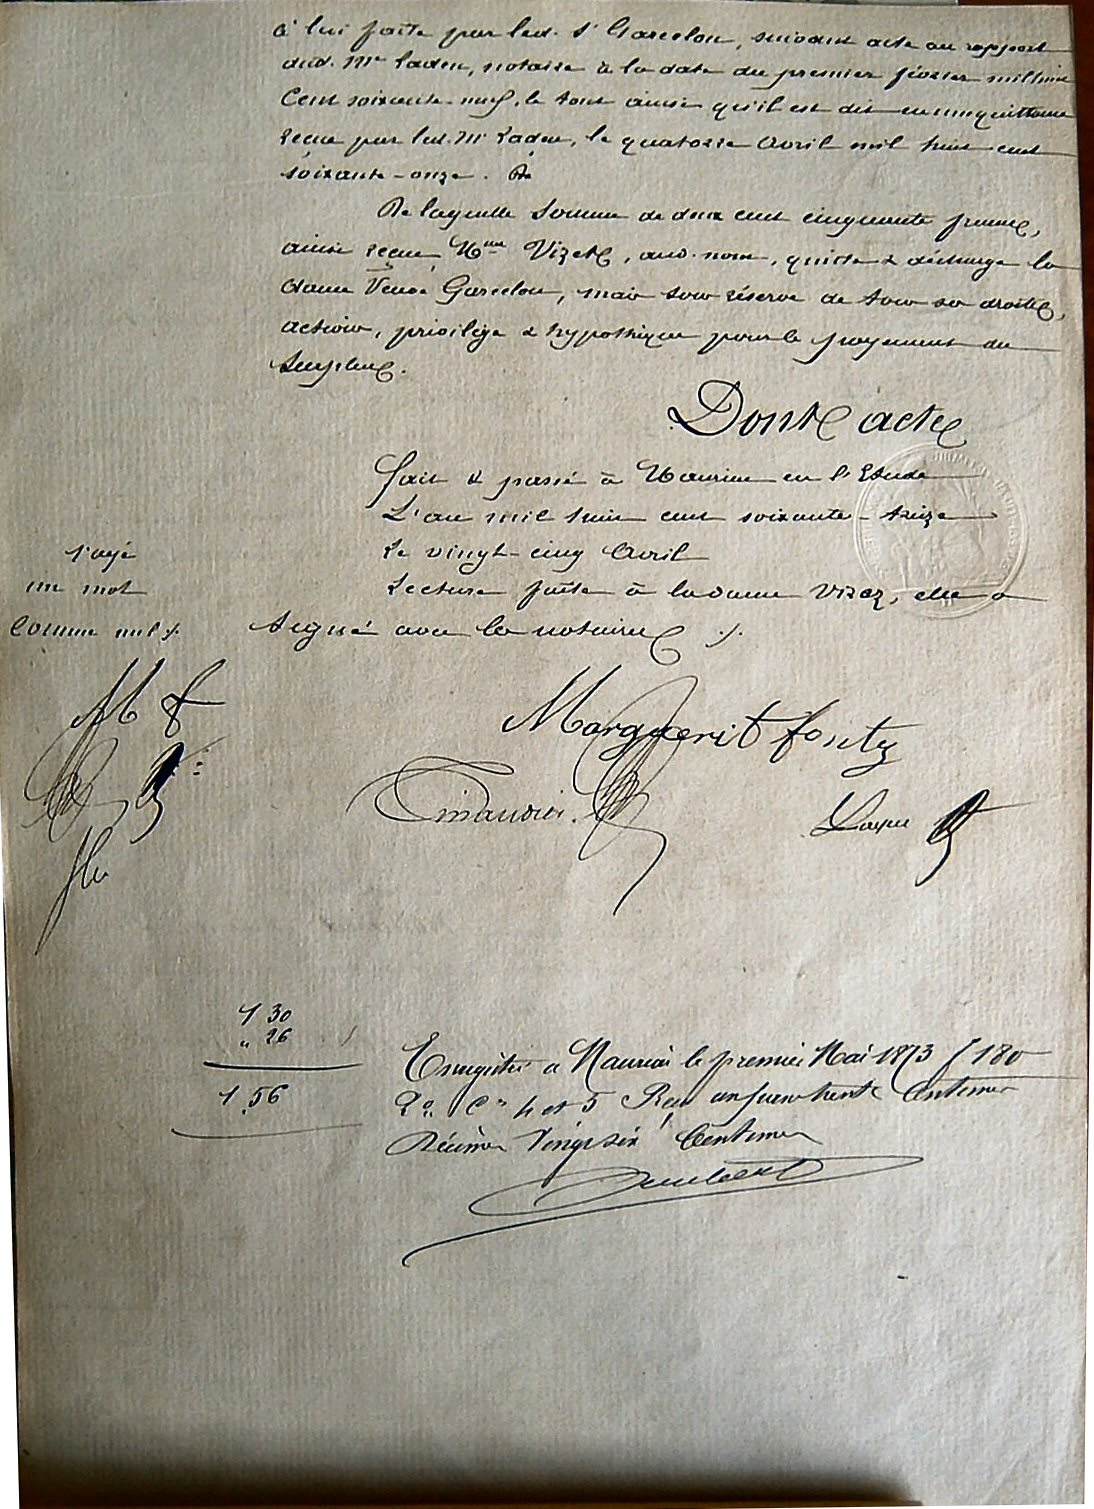 à lui faite par led. Sr Garcelon, suivant acte au rapport
dud. Me Laden, notaire à la date du premier février mil huit
cent soixante-neuf, le tout ainsi qu'il est dit en une quittance
reçue par led. Me Laden, le quatorze avril mil huit cent
soixante-onze. De
De laquelle somme de deux cent cinquante francs,
ainsi reçue, Mme Vizet, aud. nom, quitte & décharge la
dame Veuve Garcelon, mais sous réserve de tous ses droits,
actions, privilège & hypothèque pour le payement du
surplus.
Dont acte
Fait & passé à Mauriac en l'Etude
L'an mil huit cent soixante-treize
Le vingt-cinq avril
rayé
un mot
comme nul ./.
Lecture faite à la dame Vizez, elle a
signé avec les notaires ./.
M f
Marguerit fonty
1 30
" 26
1.56
Enregistré à Mauriac le premier Mai 1873 f 180
Ro Ces 4 et 5 Reçu un franc trente Centimes
Décimes Vingt six Centimes